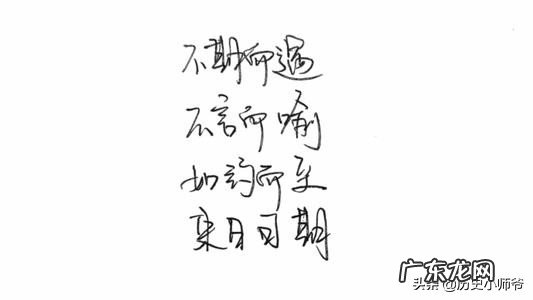 不期而遇
不言而喻
如约而至
来日可期
广东龙网
头条@历史小师爷